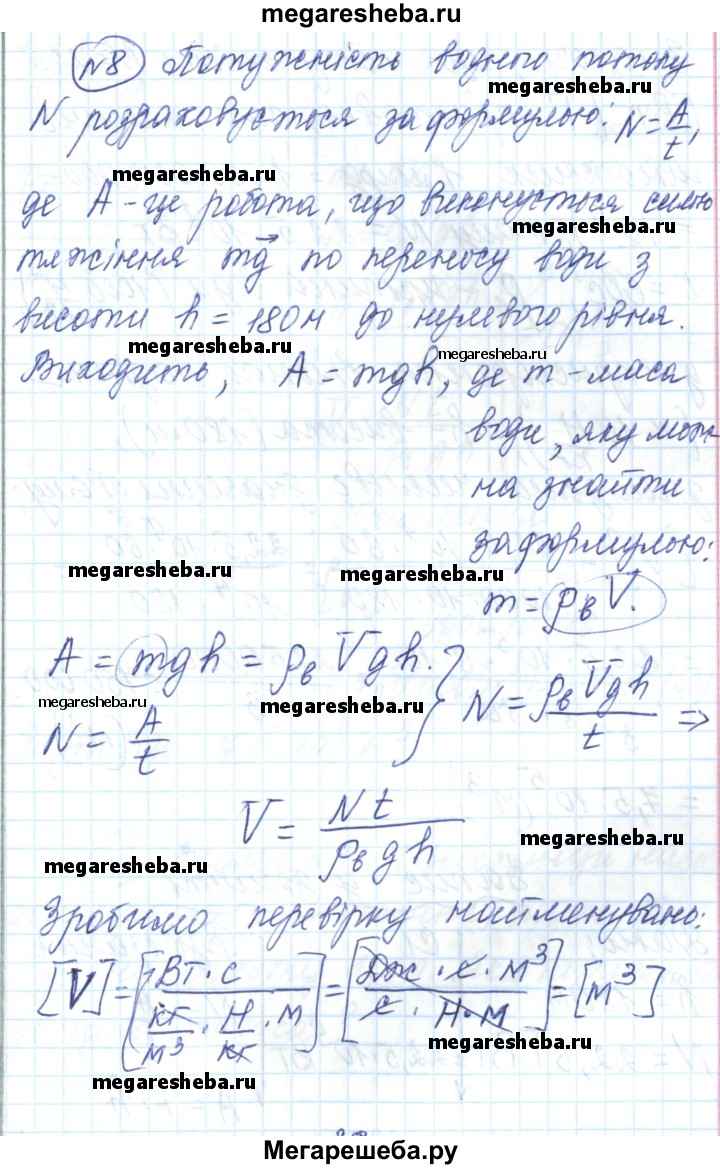 megaresheba.ru
№8 Потужність водного потоку
megaresheba.ru
N розраховується за формулою: N = A/t,
megaresheba.ru
де A - це робота, що виконується силою
megaresheba.ru
тяжіння mg⃗ по переносу води з
висоти h = 180м до нулевого рівня.
megaresheba.ru
megaresheba.ru
Виходить, A = mgh, де m - маса
води, яку мож-
на знайти
за формулою:
megaresheba.ru
megaresheba.ru
m = ρвV.
A = mgh = ρвVgh.
megaresheba.ru
megaresheba.ru
N = A/t } N = ρвVgh/t ⇒
V = Nt/ρвgh
megaresheba.ru
megaresheba.ru
Зробимо перевірку найменувань:
[V] = [Вт·с / кг/м³ · Н/кг · м] = [Дж·с·м³ / с·Н·м] = [м³]
megaresheba.ru
megaresheba.ru
Мегарешеба.ру